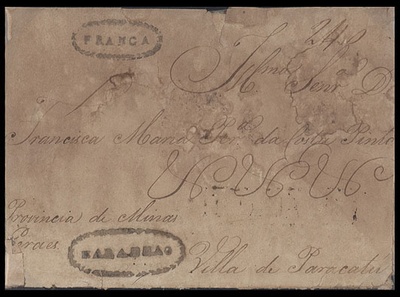 FRANCA
240
Illma. Senra. D.
Francisca Maria da Costa Pinto
Provincia de Minas
Geraes
MARANHAO
Villa de Paracatú